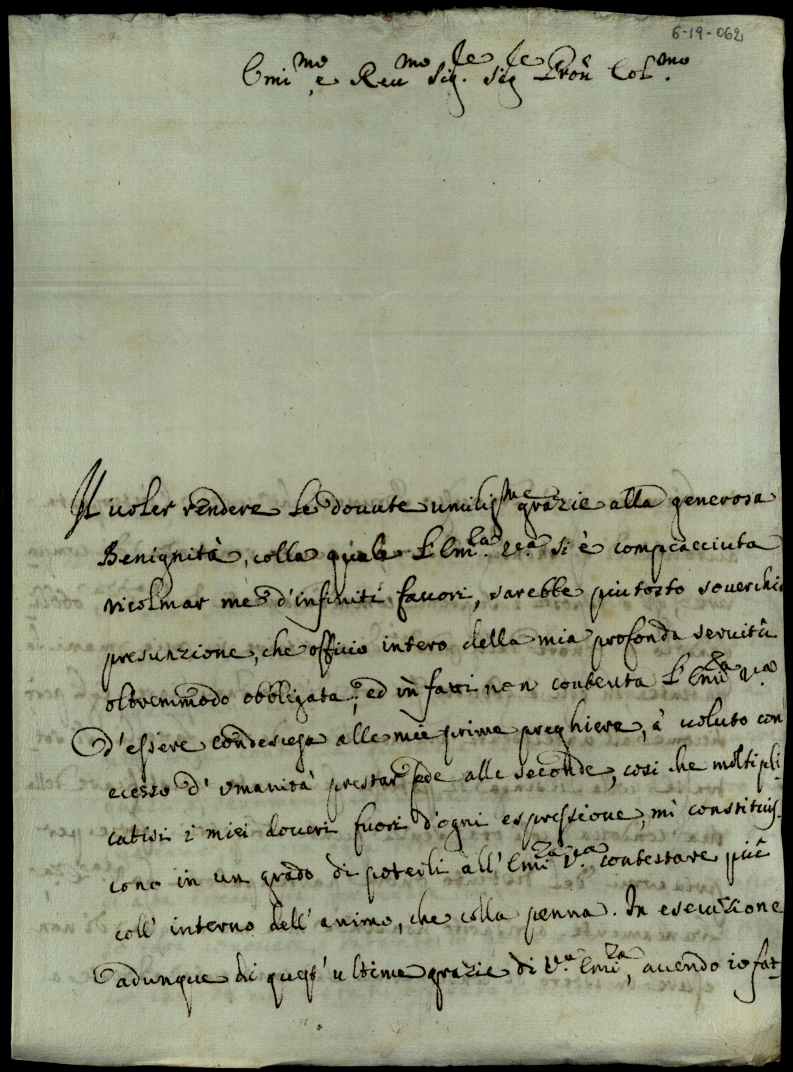 6-19-062
Emi^mo, e Reu^mo Sig.^re Sig^re Pron Col^mo.
Il uoler rendere le douute umiliss^me grazie alla generosa
Benignità, colla quale l'Em.^za V.^a si è compiacciuta
ricolmar me d'infiniti fauori, sarebbe piutosto souerchia
presunzione, che officio intero della mia profonda seruitù
oltremmodo obbligata; ed in fatti non contenta l'Emi^za V.^a
d'essere condescesa alle mie prime preghiere, à uoluto con
ecesso d'umanità prestar fede alle seconde, così che moltipli-
catisi i miei doueri fuori d'ogni espressione, mi constituis-
cono in un grado di poterli all'Emi^za V.^a contestare più
coll' interno dell' animo, che colla penna. In esecuzione
adunque di quest'ultime grazie di V.^a Emi^za, auendo io fat-